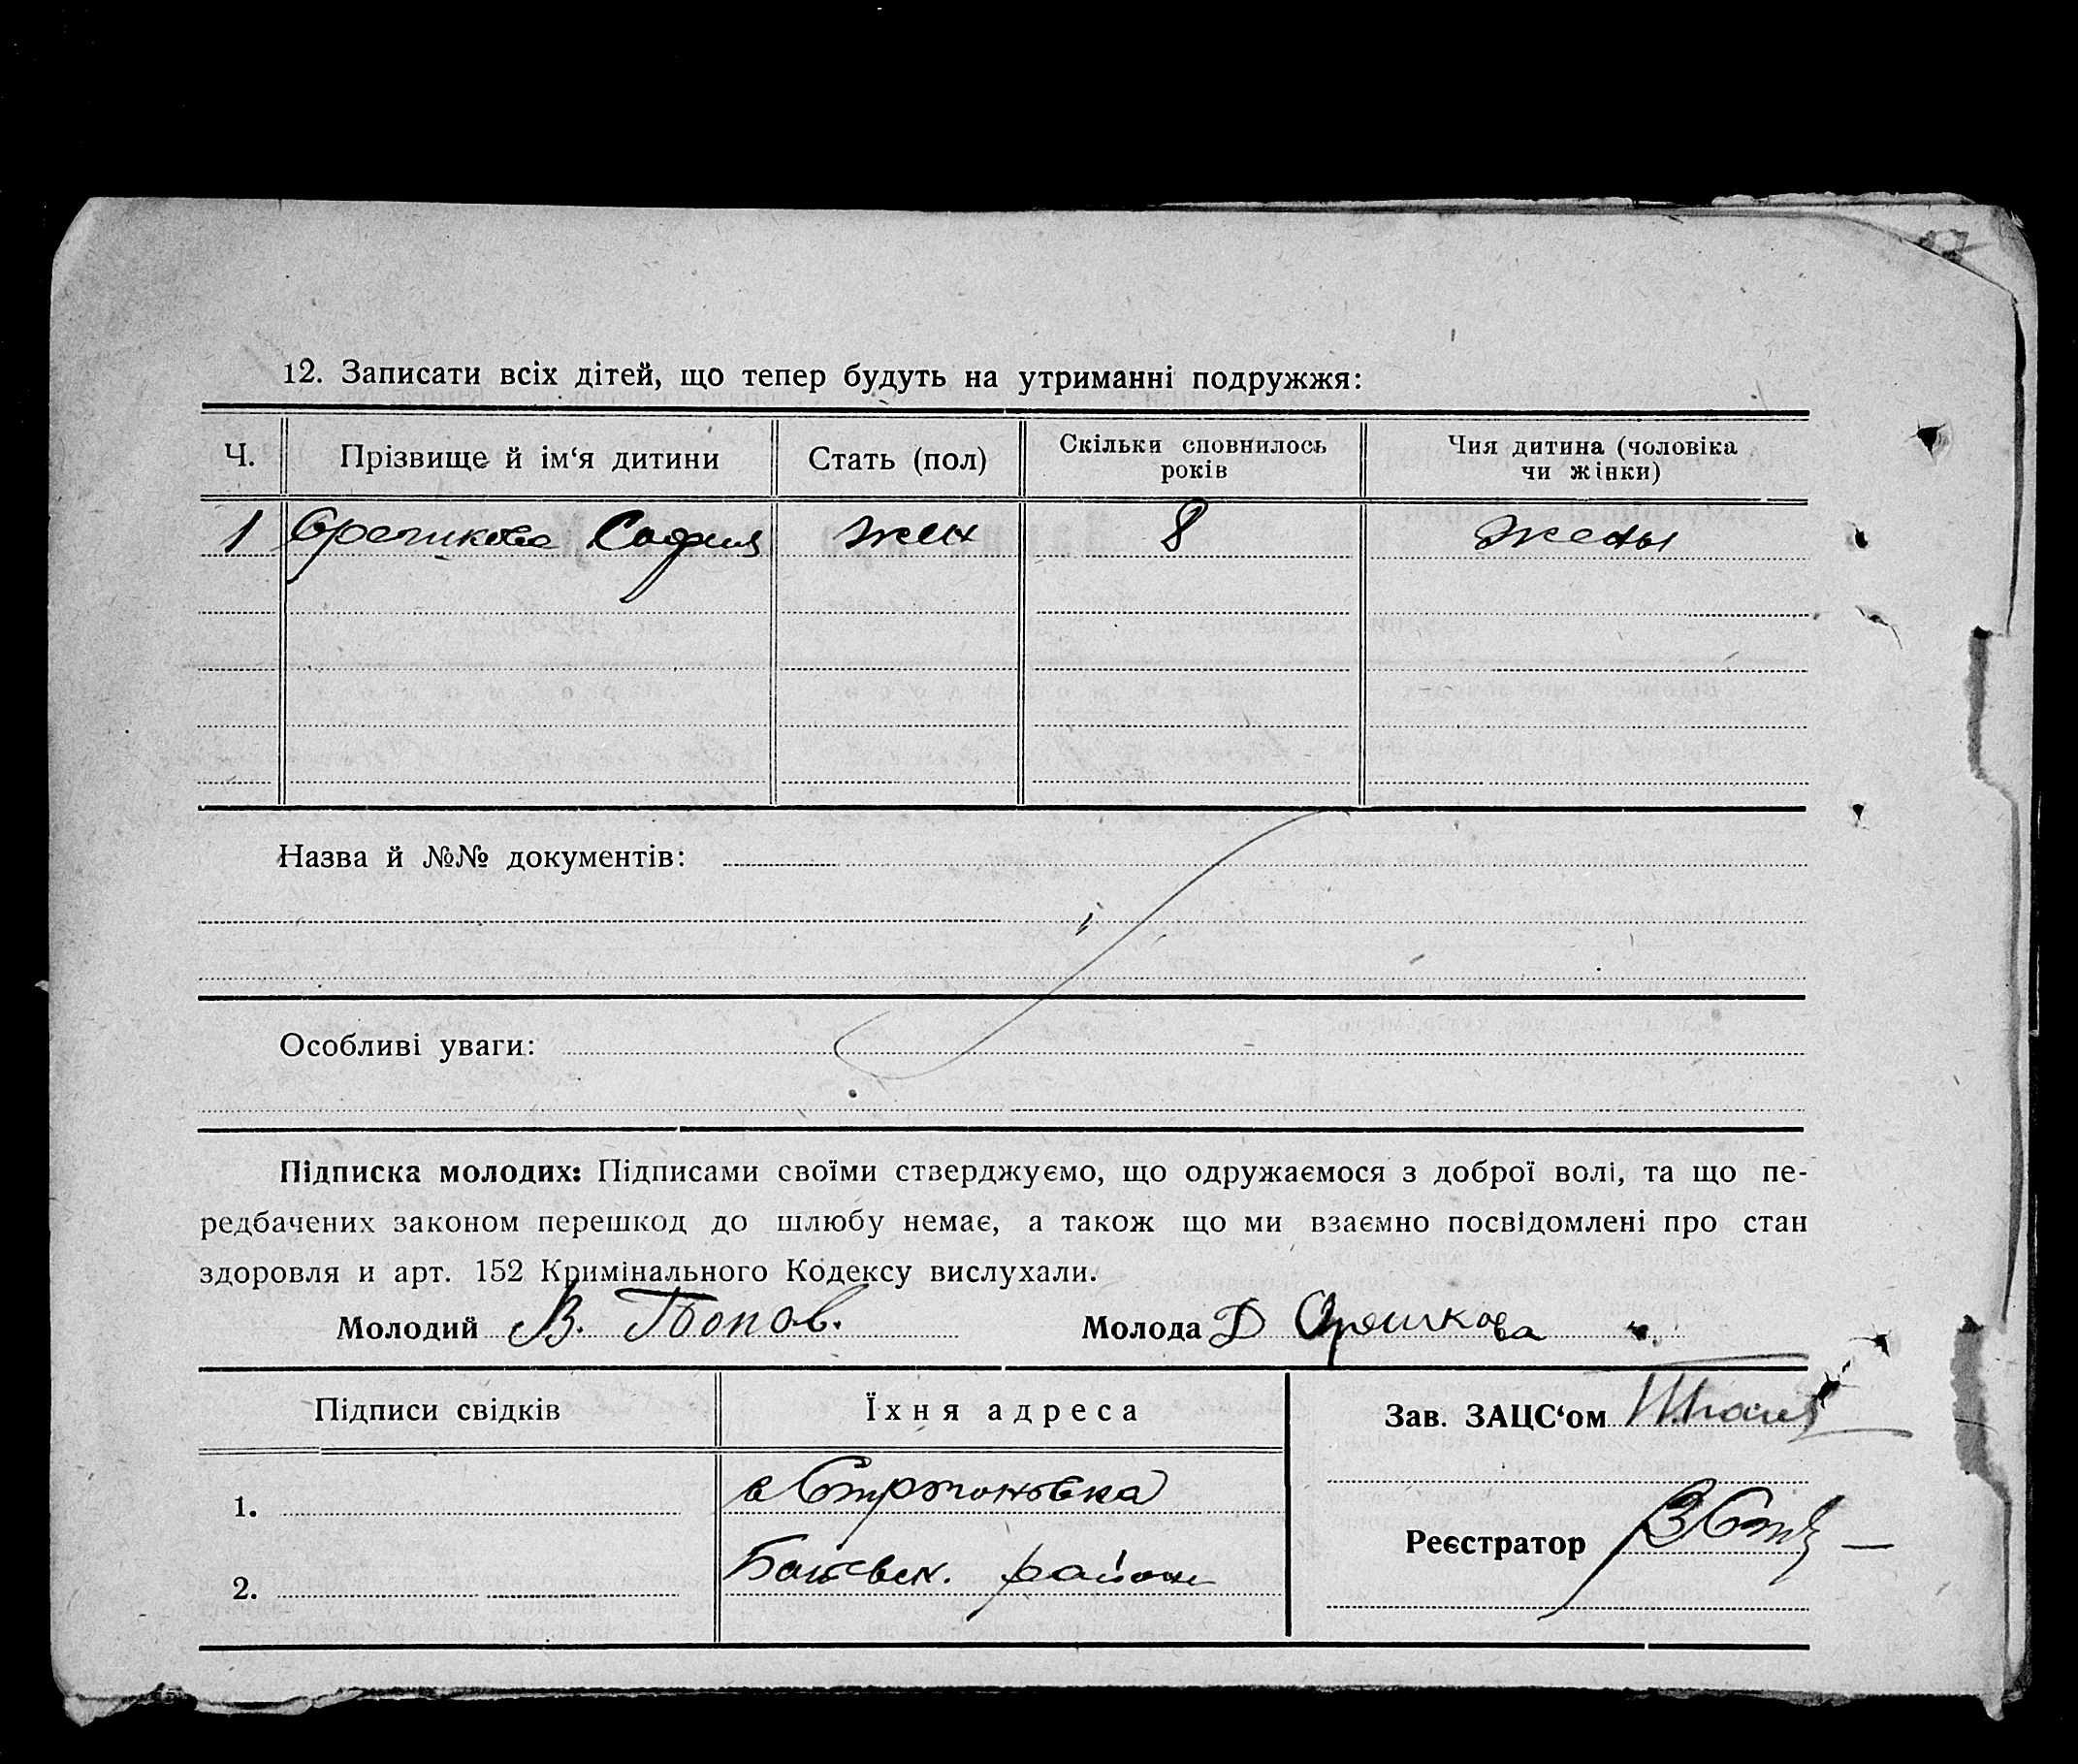 12. Записати всіх дітей, що тепер будуть на утриманні подружжя:
Ч. Прізвище й ім‘я дитини Стать (пол) Скільки сповнилось років Чия дитина (чоловіка чи жінки)
1 Орешкова София жен 8 жены
Назва й №№ документів:
Особливі уваги:
Підписка молодих: Підписами своїми стверджуємо, що одружаємося з доброї волі, та що пе-
редбачених законом перешкод до шлюбу немає, а також що ми взаємно посвідомлені про стан
здоровля и арт. 152 Кримінального Кодексу вислухали.
Молодий В. Попов. Молода Д Орешкова
Підписи свідків Їхня адреса Зав. ЗАЦС‘ом
1.
Реєстратор
2. район